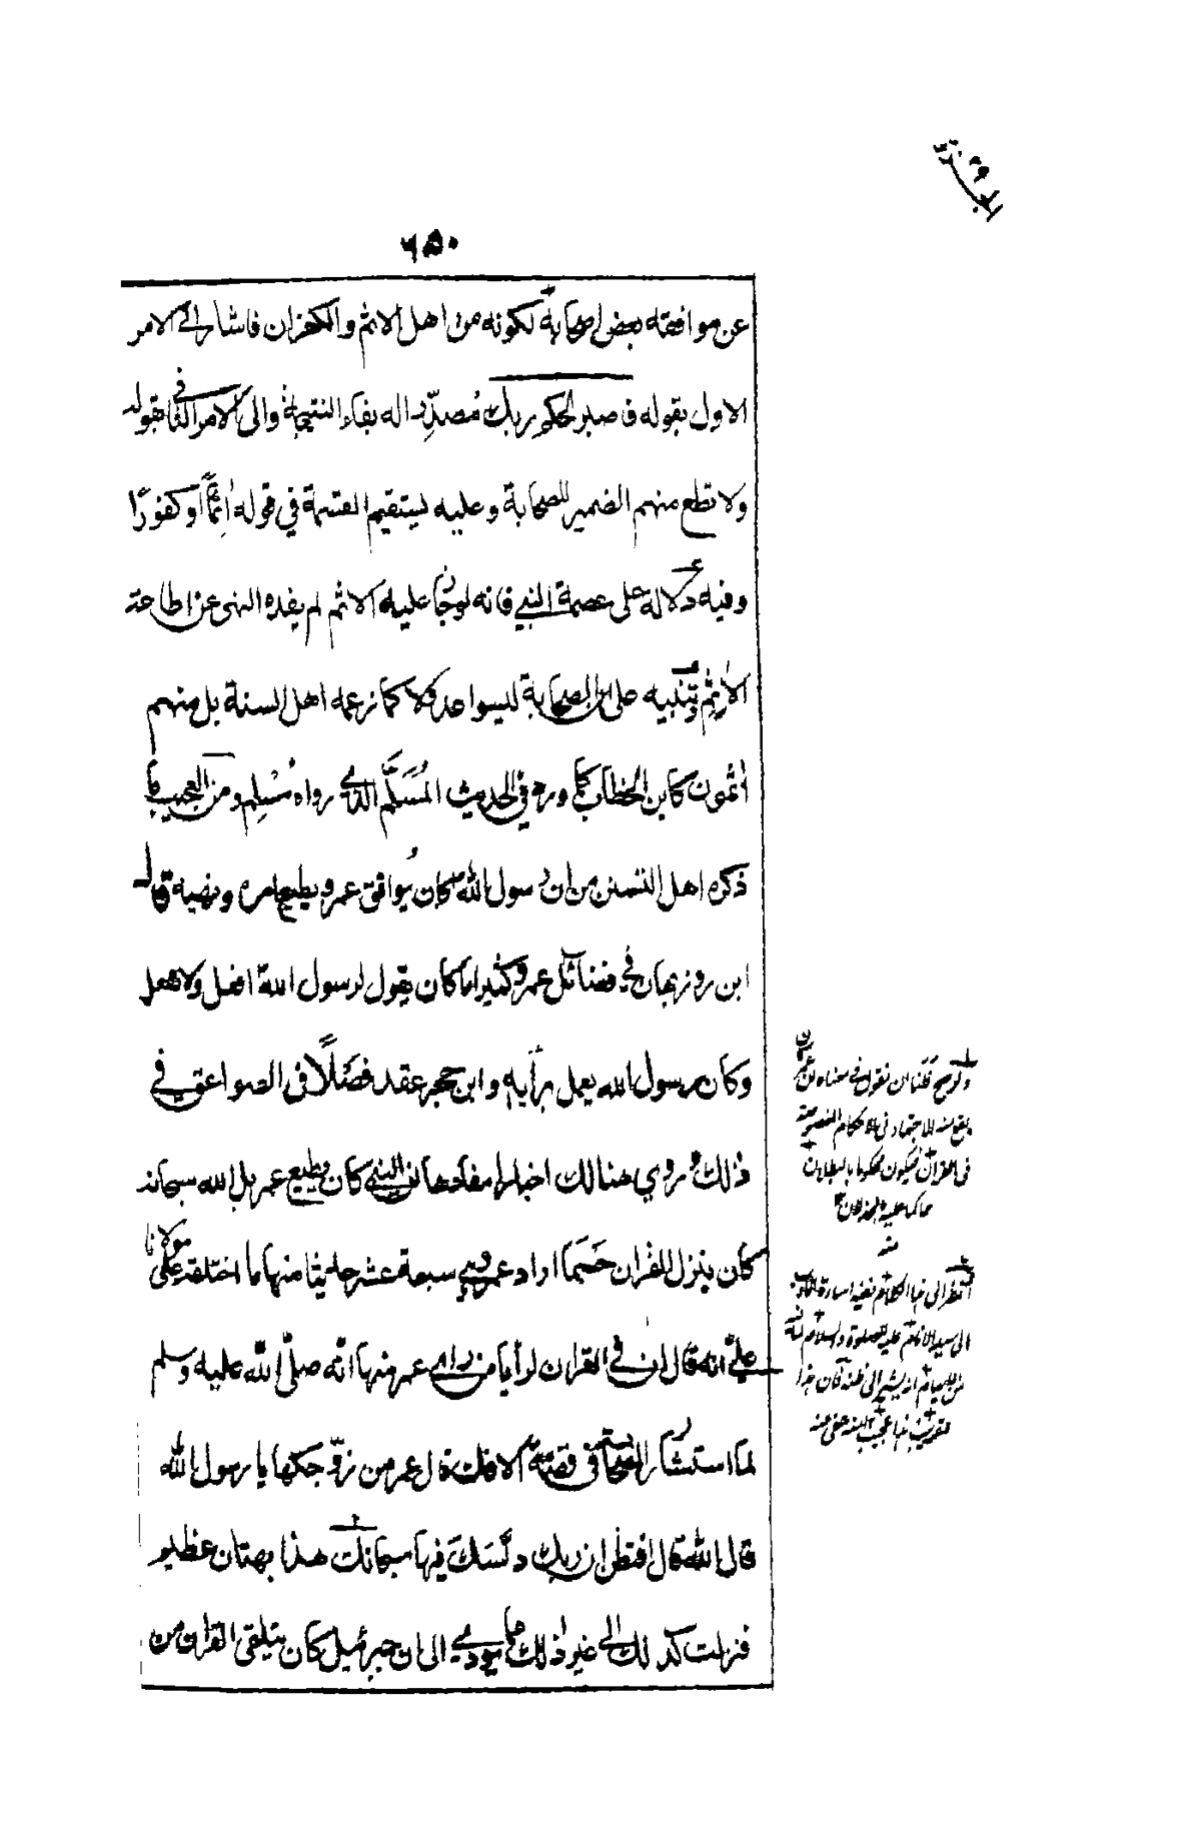 الجزء ٢٩
٦٥٠
عن موافقة بعض اصحابه لكونه من اهل الاثم والكفران فاشار الى الامر
الاول بقوله فاصبر لحكم ربك مصدّرا له بفاء النتيجة والى الامر الثاني بقوله
ولا تطع منهم الضمير للصحابة وعليه يستقيم القسمة في قوله اٰثمًا او كفورًا
وفيه دلالة على عصمة النبي فانه لو جاز عليه الاثم لم يفده النهي عن اطاعة
الاٰثم وتنبيه على ان الصحابة ليسوا عدولا كما زعمه اهل السنة بل منهم
اٰثمون كابن الخطاب كما ورد في الحديث المُسَلَّم الذي رواه مُسْلِم ومن العجيب ما
ذكره اهل التسنن من ان رسول الله ص كان يُوافق عمر ويطيع امره ونهيه قال
ابن روزبهان في فضائل عمر وكثيرا ما كان يقول لرسول الله افعل ولا تفعل
وكان رسول الله يعمل برأيه وابن حجر عقد فصلًا في الصواعق في
ذلك وروي هنالك اخبارا مفادها ان النبي كان يطيع عمر بل الله سبحانه
كان ينزل القران حَسَبما اراد عمر وهي سبعة عشر حديثا منها ما اختلقه على مولانا
علي انه قال ان في القران لرأيا من راي عمر منها انه صلّى الله عليه وسلم
لما استشار الصحابة في قصة الافك قال عمر من زوّجكها يا رسول الله
قال الله قال افتظن ان ربك دلّسك فيها سبحانك هذا بهتان عظيم
فنزلت كذلك الى غير ذلك مما يودي الى ان جبرئيل كان يتلقى القران من
يقع منه الاجتهاد في الاحكام المنصوصة
في القران فيكون محكوما بالبطلان
حاكما عليه بالخذلان
منه
انظر الى هذا الكلام
الى سيد الانام عليه الصلوة والسلام